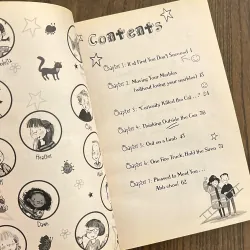 Contents
Chapter 1: If at First You Don't Succeed 1
Chapter 2: Moving Your Marbles
(without losing your marbles) 13
Chapter 3: "Curiosity Killed the Cat..." 24
Chapter 4: Thinking Outside the Cat 38
Chapter 5: Out on a Limb 43
Chapter 6: One Fire Truck, Hold the Siren
Chapter 7: Pleased to Meet You...
Heather
Dawn